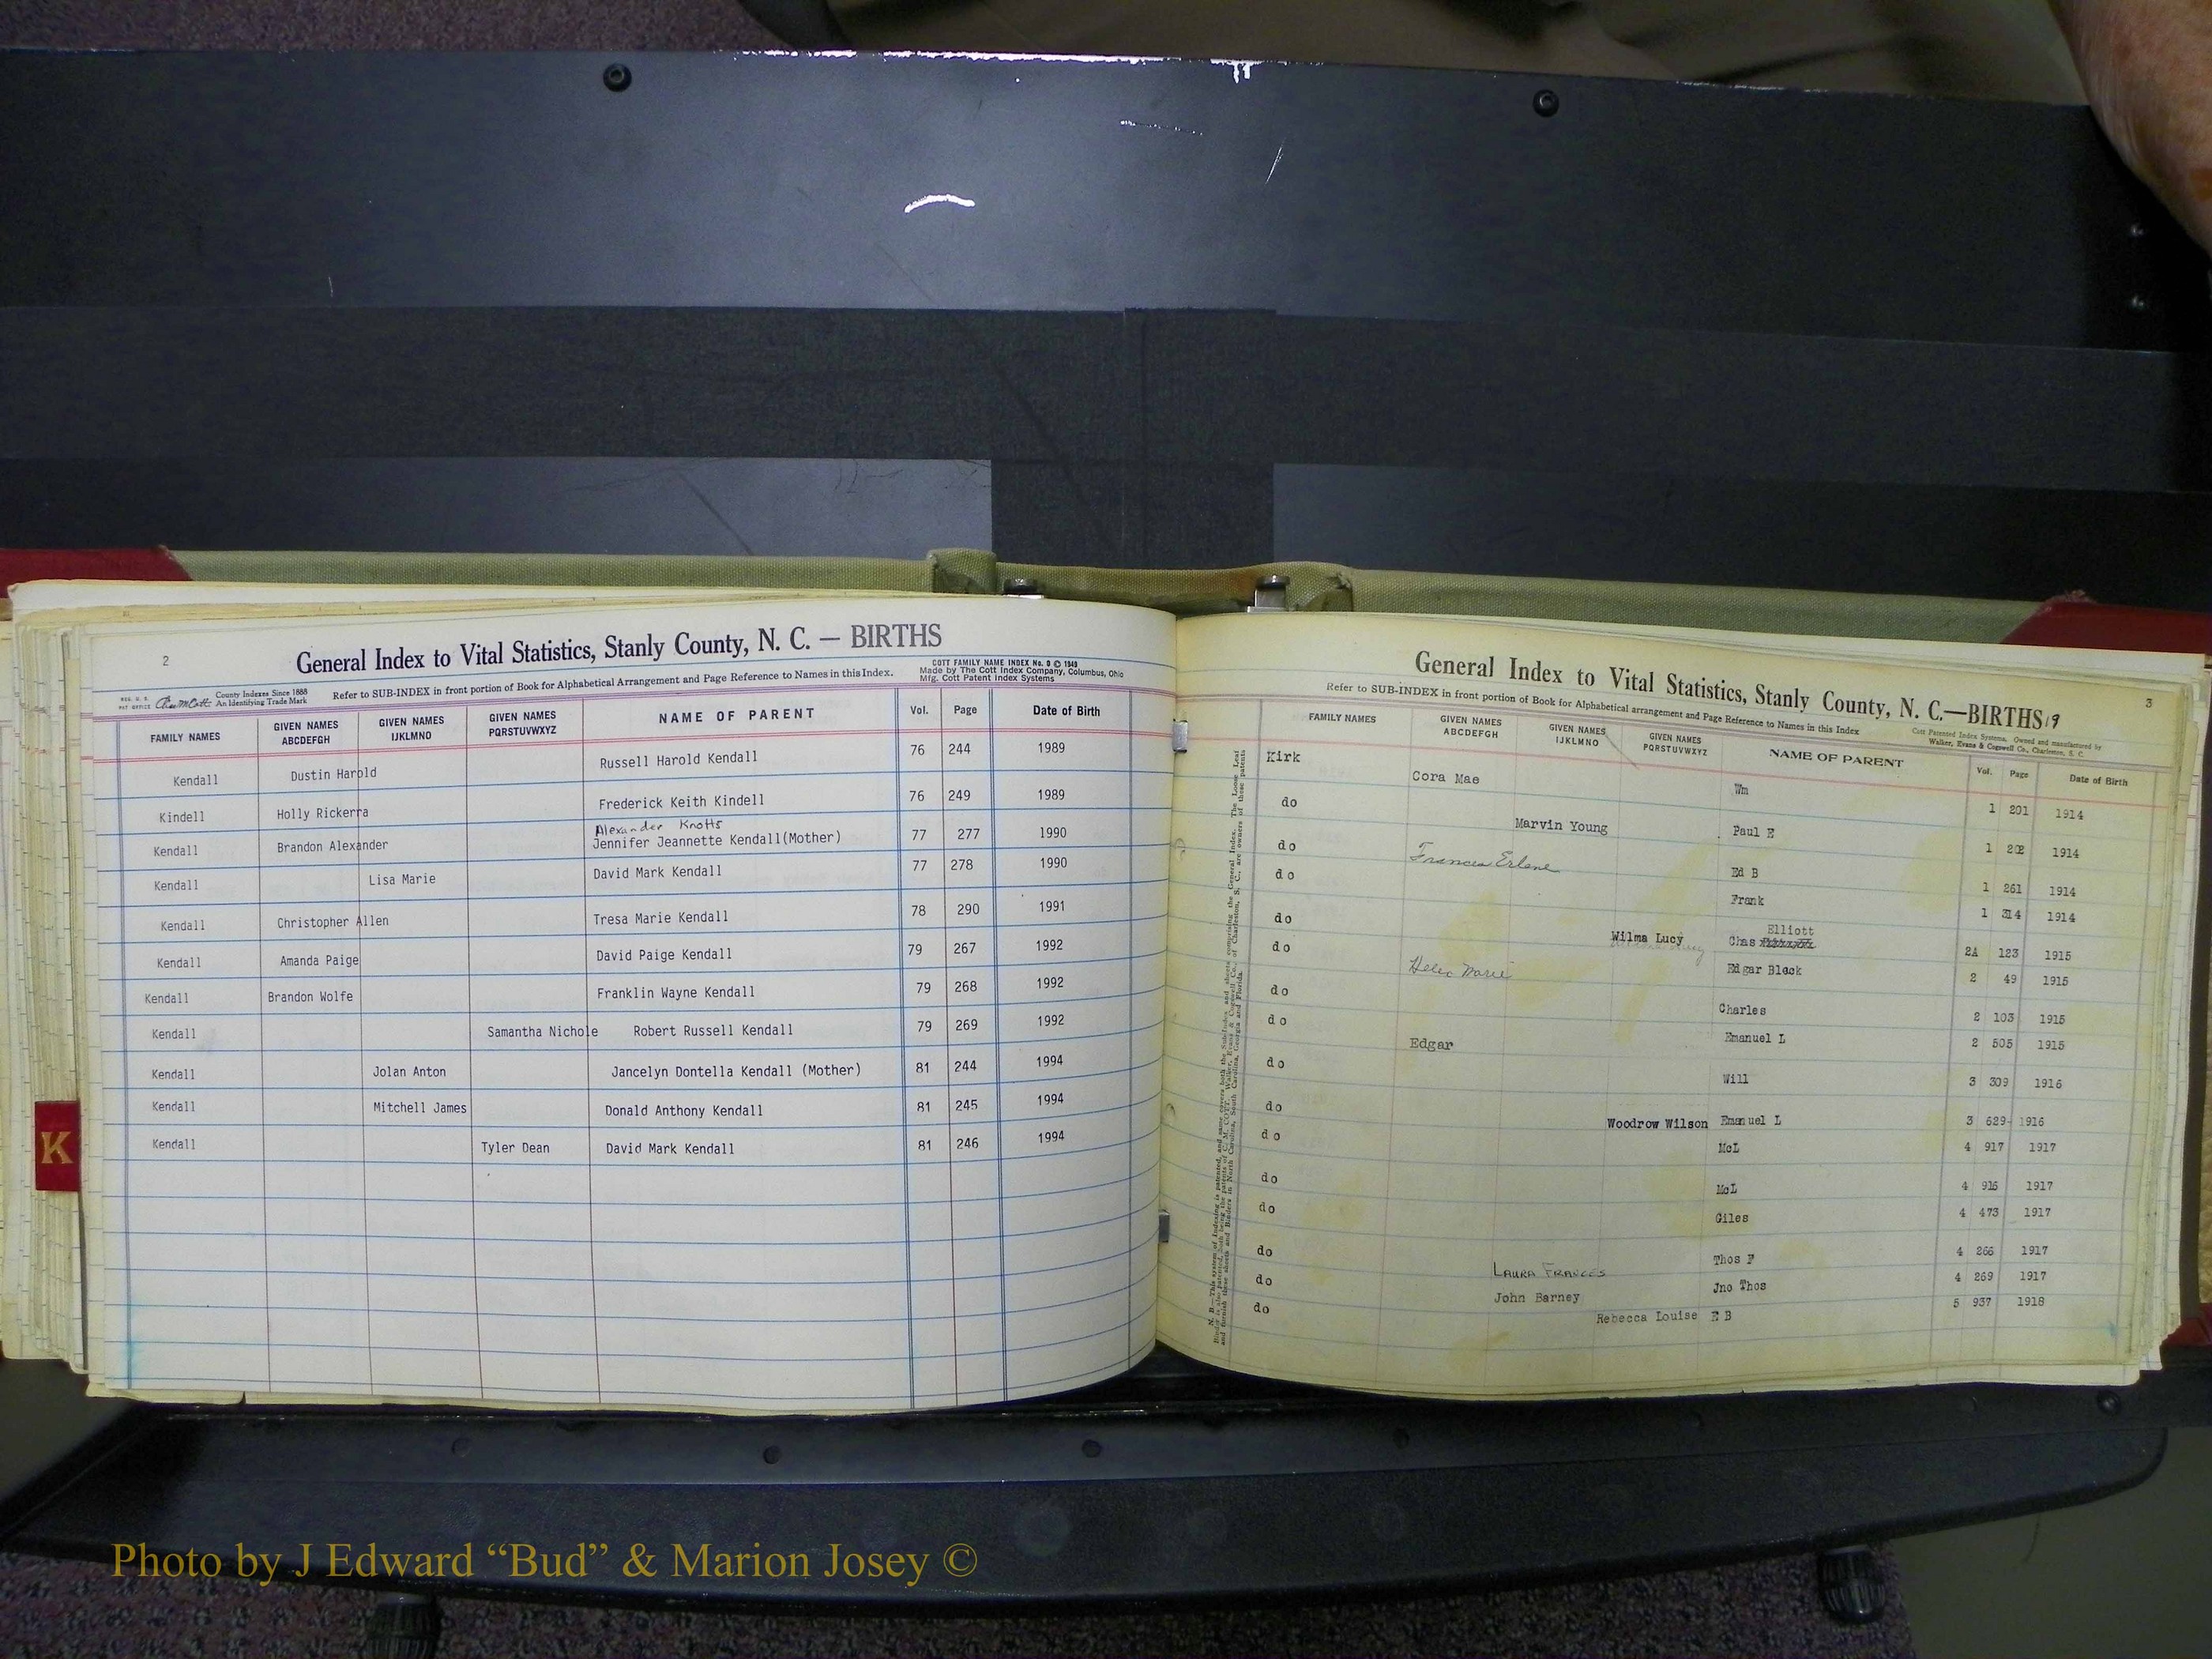 2
General Index to Vital Statistics, Stanly County, N. C. — BIRTHS
COTT FAMILY NAME INDEX No. 9 © 1949
Made by The Cott Index Company, Columbus, Ohio
Mfg. Cott Patent Index Systems
REG. U. S. PAT. OFFICE County Indexes Since 1888
An Identifying Trade Mark
Refer to SUB-INDEX in front portion of Book for Alphabetical Arrangement and Page Reference to Names in this Index.
FAMILY NAMES GIVEN NAMES ABCDEFGH GIVEN NAMES IJKLMNO GIVEN NAMES PQRSTUVWXYZ NAME OF PARENT Vol. Page Date of Birth
Kendall Dustin Harold Russell Harold Kendall 76 244 1989
Kindell Holly Rickerra Frederick Keith Kindell 76 249 1989
Alexander Knotts
Kendall Brandon Alexander Jennifer Jeannette Kendall(Mother) 77 277 1990
Kendall Lisa Marie David Mark Kendall 77 278 1990
Kendall Christopher Allen Tresa Marie Kendall 78 290 1991
Kendall Amanda Paige David Paige Kendall 79 267 1992
Kendall Brandon Wolfe Franklin Wayne Kendall 79 268 1992
Kendall Samantha Nichole Robert Russell Kendall 79 269 1992
Kendall Jolan Anton Jancelyn Dontella Kendall (Mother) 81 244 1994
Kendall Mitchell James Donald Anthony Kendall 81 245 1994
Kendall Tyler Dean David Mark Kendall 81 246 1994
K
3
General Index to Vital Statistics, Stanly County, N. C.—BIRTHS 19
Refer to SUB-INDEX in front portion of Book for Alphabetical arrangement and Page Reference to Names in this Index
Cott Patented Index Systems. Owned and manufactured by
Walker, Evans & Cogswell Co., Charleston, S. C.
FAMILY NAMES GIVEN NAMES ABCDEFGH GIVEN NAMES IJKLMNO GIVEN NAMES PQRSTUVWXYZ NAME OF PARENT Vol. Page Date of Birth
Kirk Cora Mae Wm 1 201 1914
do Marvin Young Paul E 1 202 1914
do Frances Erlene Ed B 1 261 1914
do Frank 1 314 1914
Elliott
do Wilma Lucy Chas 2A 123 1915
do Helen Marie Edgar Black 2 49 1915
do Charles 2 103 1915
do Edgar Emanuel L 2 505 1915
do Will 3 309 1916
do Woodrow Wilson Emanuel L 3 629 1916
do McL 4 917 1917
do McL 4 916 1917
do Giles 4 473 1917
do Laura Frances Thos F 4 266 1917
do John Barney Jno Thos 4 269 1917
do Rebecca Louise E B 5 937 1918
Photo by J Edward “Bud” & Marion Josey ©